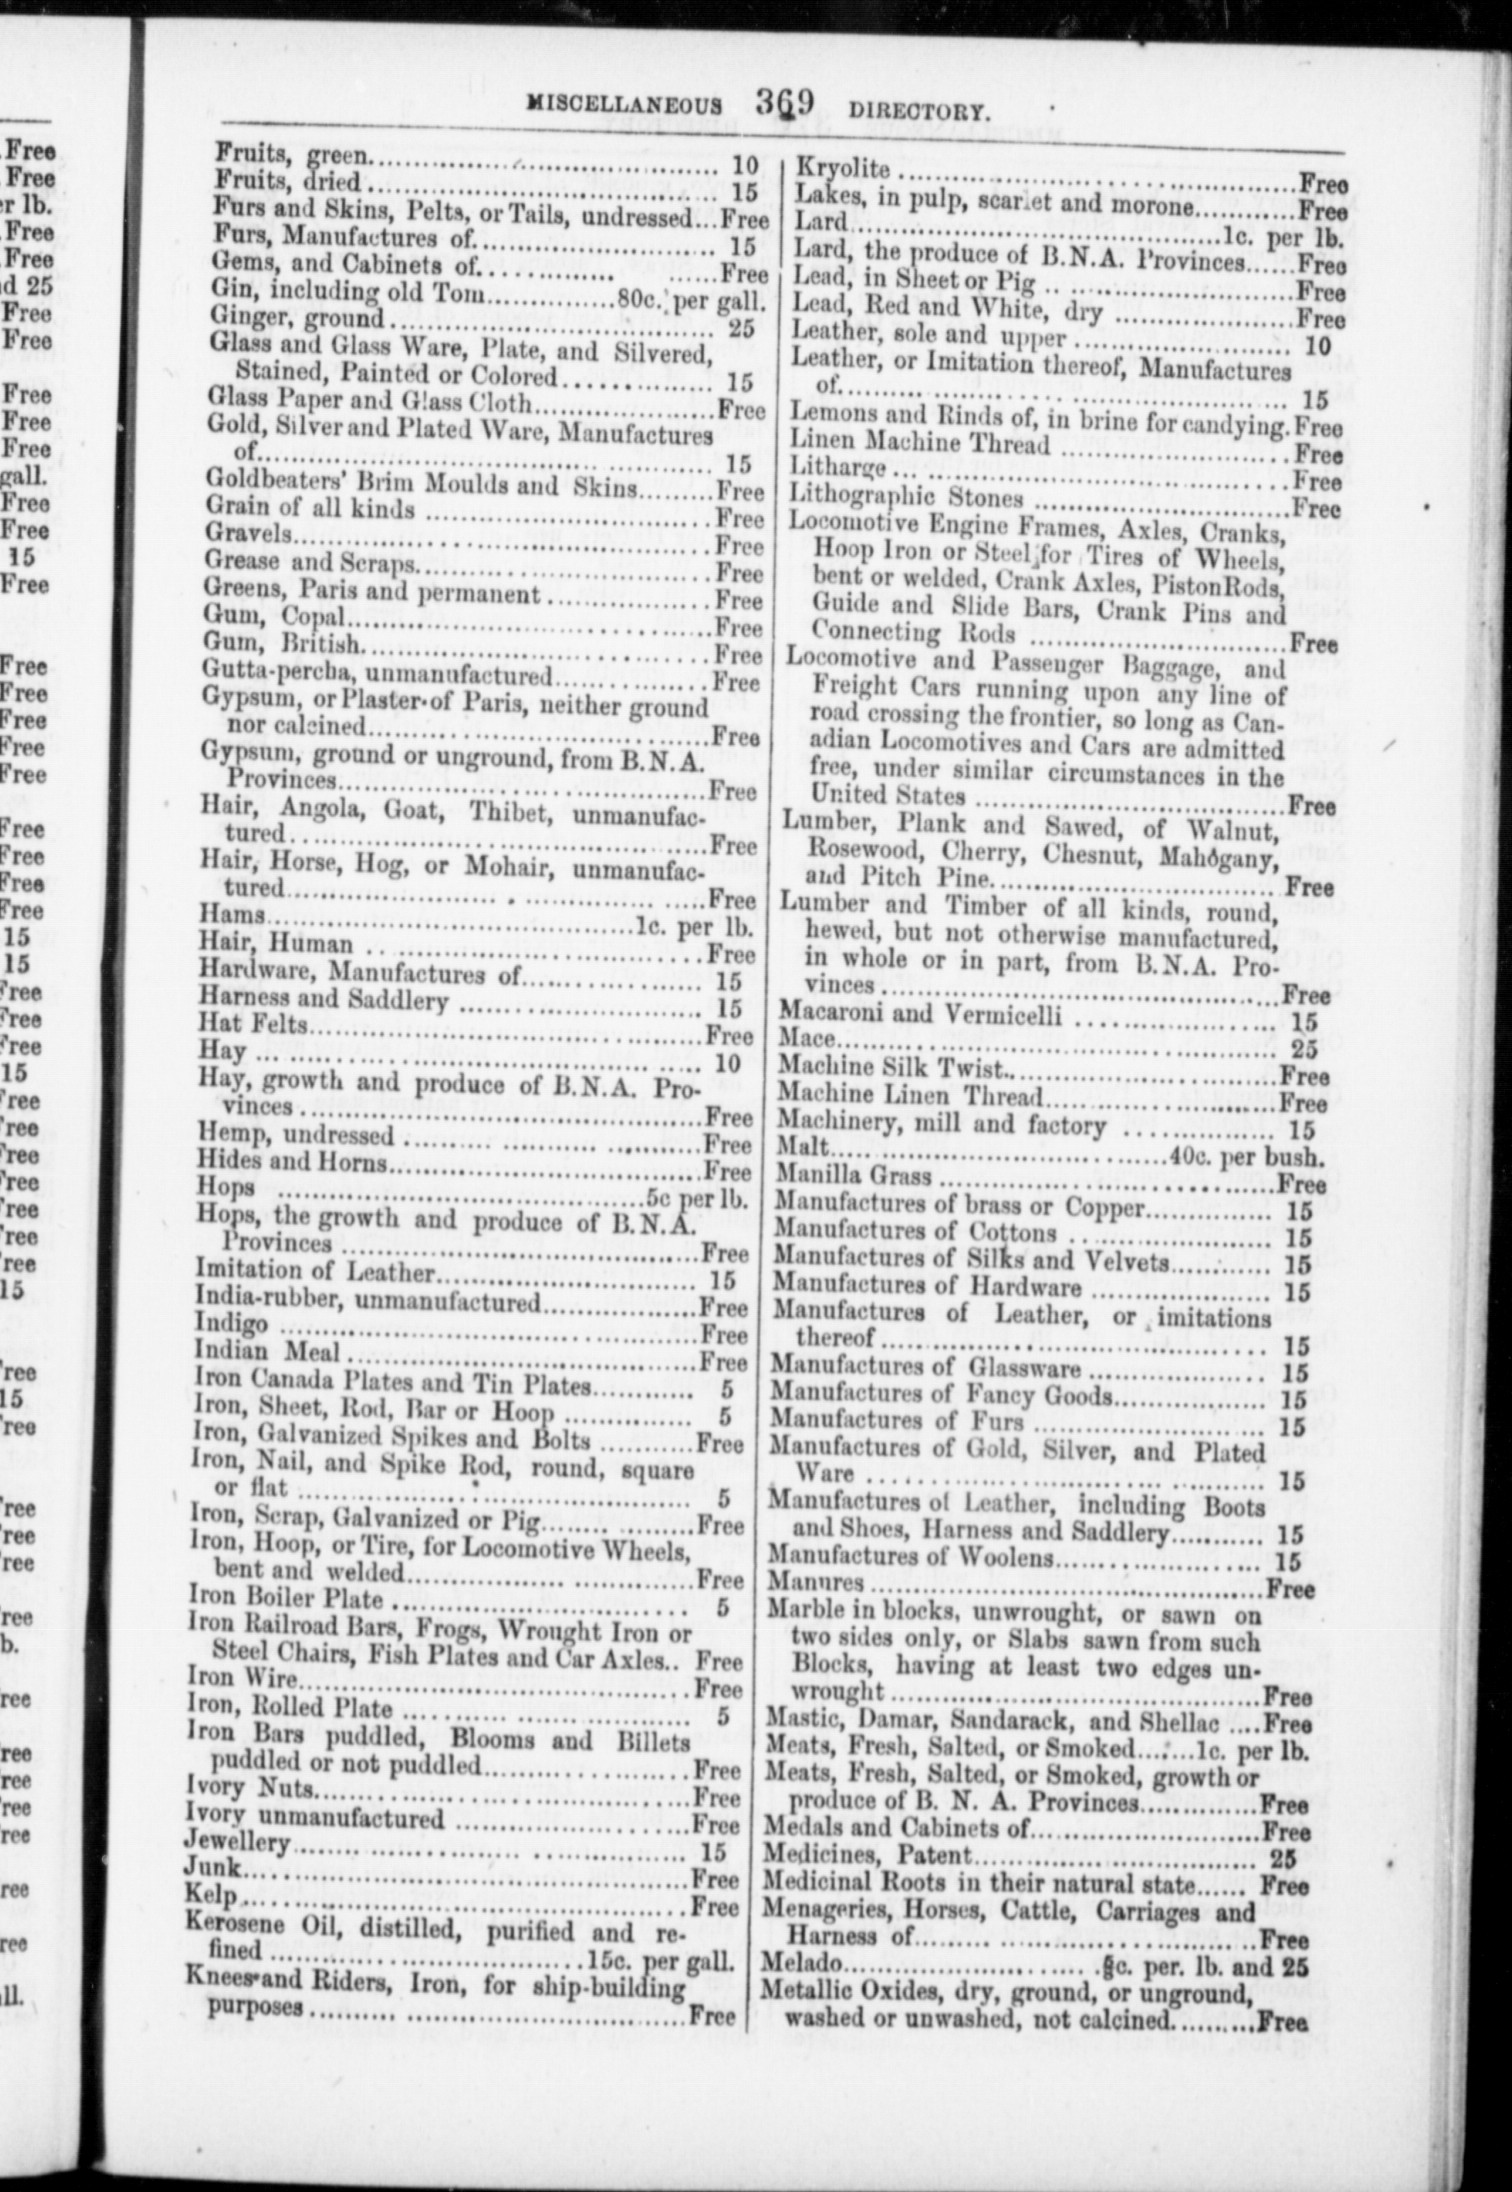 MISCELLANEOUS 369 DIRECTORY.
Fruits, green 10
Fruits, dried 15
Furs and Skins, Pelts, or Tails, undressed...Free
Furs, Manufactures of. 15
Gems, and Cabinets of. Free
Gin, including old Tom 80c. per gall.
Ginger, ground 25
Glass and Glass Ware, Plate, and Silvered,
Stained, Painted or Colored 15
Glass Paper and Glass Cloth Free
Gold, Silver and Plated Ware, Manufactures
of 15
Goldbeaters' Brim Moulds and Skins Free
Grain of all kinds Free
Gravels Free
Grease and Scraps Free
Greens, Paris and permanent Free
Gum, Copal Free
Gum, British Free
Gutta-percha, unmanufactured Free
Gypsum, or Plaster-of Paris, neither ground
nor calcined Free
Gypsum, ground or unground, from B.N.A.
Provinces Free
Hair, Angola, Goat, Thibet, unmanufac-
tured Free
Hair, Horse, Hog, or Mohair, unmanufac-
tured Free
Hams 1c. per lb.
Hair, Human Free
Hardware, Manufactures of 15
Harness and Saddlery 15
Hat Felts Free
Hay 10
Hay, growth and produce of B.N.A. Pro-
vinces Free
Hemp, undressed Free
Hides and Horns Free
Hops 5c per lb.
Hops, the growth and produce of B.N.A.
Provinces Free
Imitation of Leather 15
India-rubber, unmanufactured Free
Indigo Free
Indian Meal Free
Iron Canada Plates and Tin Plates 5
Iron, Sheet, Rod, Bar or Hoop 5
Iron, Galvanized Spikes and Bolts Free
Iron, Nail, and Spike Rod, round, square
or flat 5
Iron, Scrap, Galvanized or Pig Free
Iron, Hoop, or Tire, for Locomotive Wheels,
bent and welded Free
Iron Boiler Plate 5
Iron Railroad Bars, Frogs, Wrought Iron or
Steel Chairs, Fish Plates and Car Axles.. Free
Iron Wire Free
Iron, Rolled Plate 5
Iron Bars puddled, Blooms and Billets
puddled or not puddled Free
Ivory Nuts Free
Ivory unmanufactured Free
Jewellery 15
Junk Free
Kelp Free
Kerosene Oil, distilled, purified and re-
fined 15c. per gall.
Knees and Riders, Iron, for ship-building
purposes Free
Kryolite Free
Lakes, in pulp, scarlet and morone Free
Lard 1c. per lb.
Lard, the produce of B.N.A. Provinces Free
Lead, in Sheet or Pig Free
Lead, Red and White, dry Free
Leather, sole and upper 10
Leather, or Imitation thereof, Manufactures
of 15
Lemons and Rinds of, in brine for candying. Free
Linen Machine Thread Free
Litharge Free
Lithographic Stones Free
Locomotive Engine Frames, Axles, Cranks,
Hoop Iron or Steel for Tires of Wheels,
bent or welded, Crank Axles, Piston Rods,
Guide and Slide Bars, Crank Pins and
Connecting Rods Free
Locomotive and Passenger Baggage, and
Freight Cars running upon any line of
road crossing the frontier, so long as Can-
adian Locomotives and Cars are admitted
free, under similar circumstances in the
United States Free
Lumber, Plank and Sawed, of Walnut,
Rosewood, Cherry, Chesnut, Mahogany,
and Pitch Pine Free
Lumber and Timber of all kinds, round,
hewed, but not otherwise manufactured,
in whole or in part, from B.N.A. Pro-
vinces Free
Macaroni and Vermicelli 15
Mace 25
Machine Silk Twist Free
Machine Linen Thread Free
Machinery, mill and factory 15
Malt 40c. per bush.
Manilla Grass Free
Manufactures of brass or Copper 15
Manufactures of Cottons 15
Manufactures of Silks and Velvets 15
Manufactures of Hardware 15
Manufactures of Leather, or imitations
thereof 15
Manufactures of Glassware 15
Manufactures of Fancy Goods 15
Manufactures of Furs 15
Manufactures of Gold, Silver, and Plated
Ware 15
Manufactures of Leather, including Boots
and Shoes, Harness and Saddlery 15
Manufactures of Woolens 15
Manures Free
Marble in blocks, unwrought, or sawn on
two sides only, or Slabs sawn from such
Blocks, having at least two edges un-
wrought Free
Mastic, Damar, Sandarack, and Shellac ....Free
Meats, Fresh, Salted, or Smoked 1c. per lb.
Meats, Fresh, Salted, or Smoked, growth or
produce of B. N. A. Provinces Free
Medals and Cabinets of Free
Medicines, Patent 25
Medicinal Roots in their natural state Free
Menageries, Horses, Cattle, Carriages and
Harness of Free
Melado c. per. lb. and 25
Metallic Oxides, dry, ground, or unground,
washed or unwashed, not calcined Free